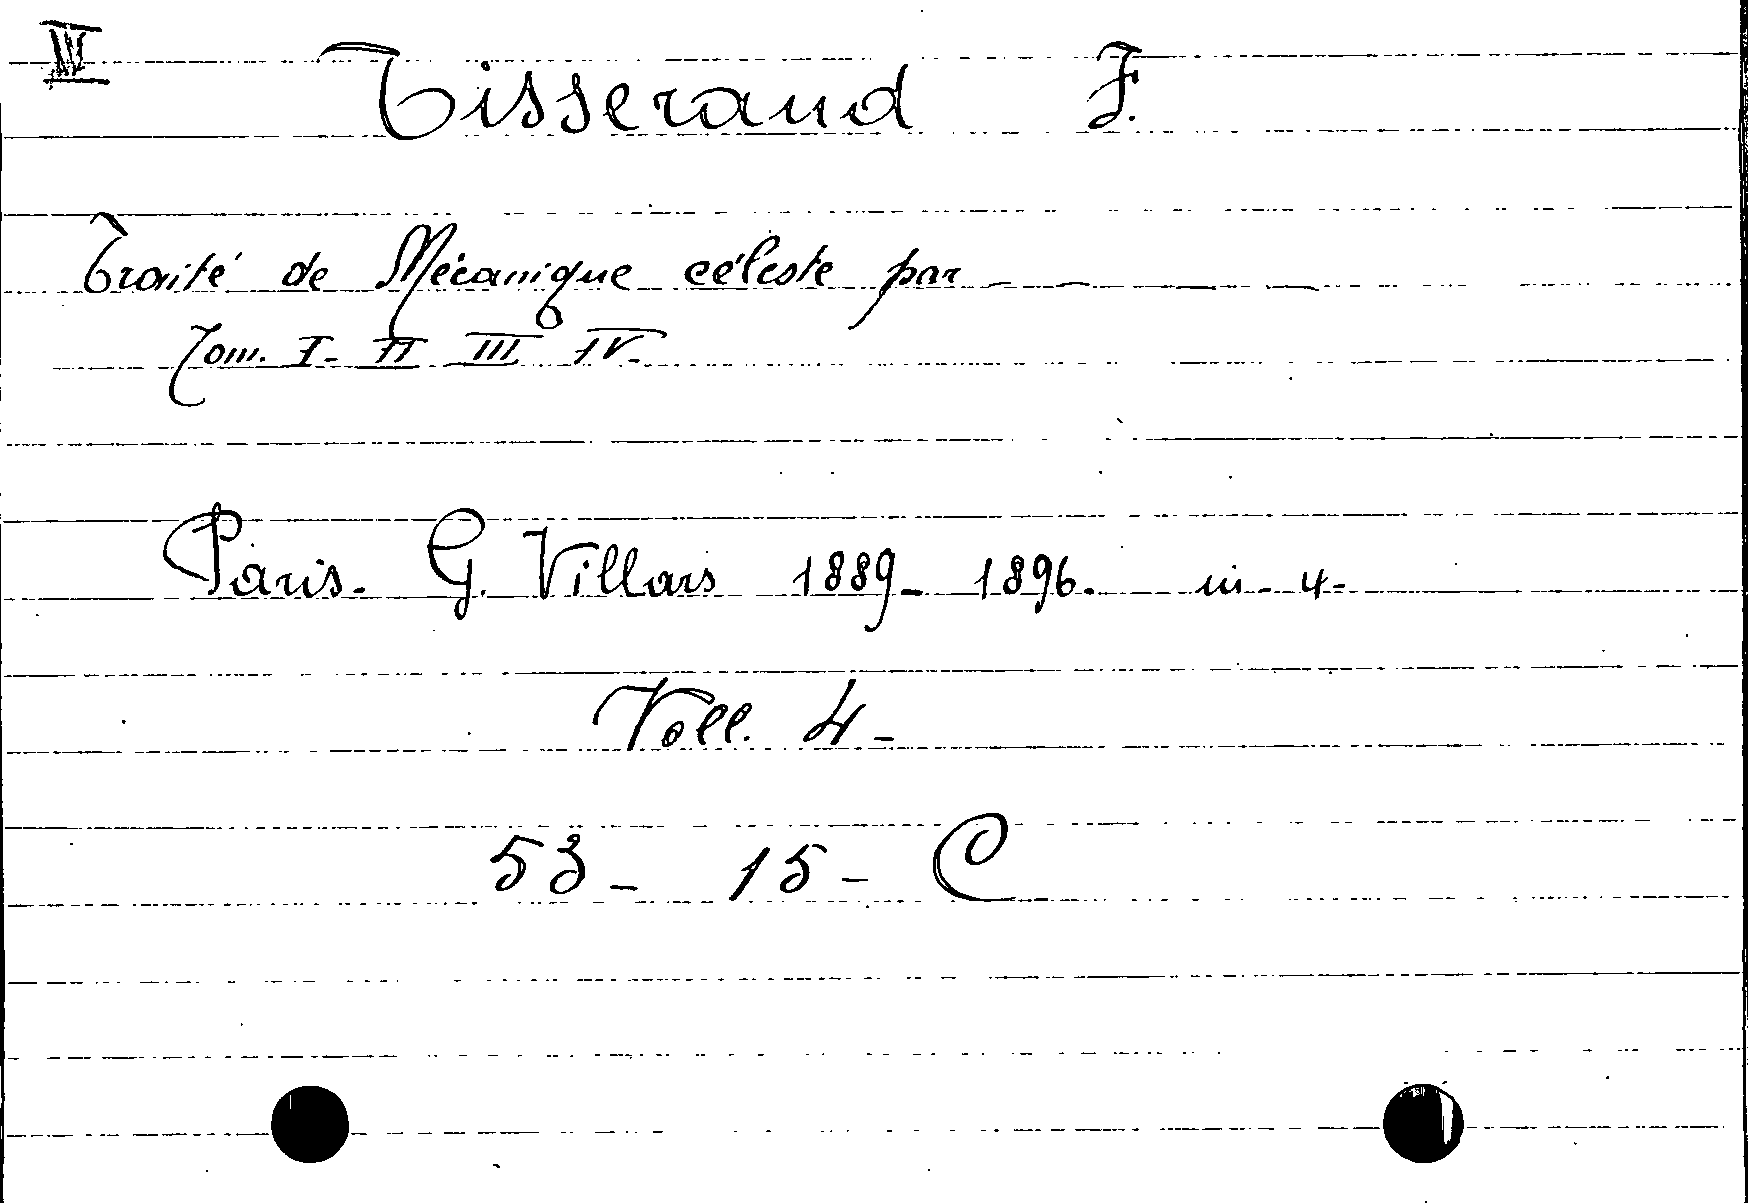 IV
Tisserand F.
Traité de Mécanique céleste par - -
Tom. I- II III IV-
Paris. G. Villars 1889- 1896. in- 4-
Voll. 4-
53- 15- C